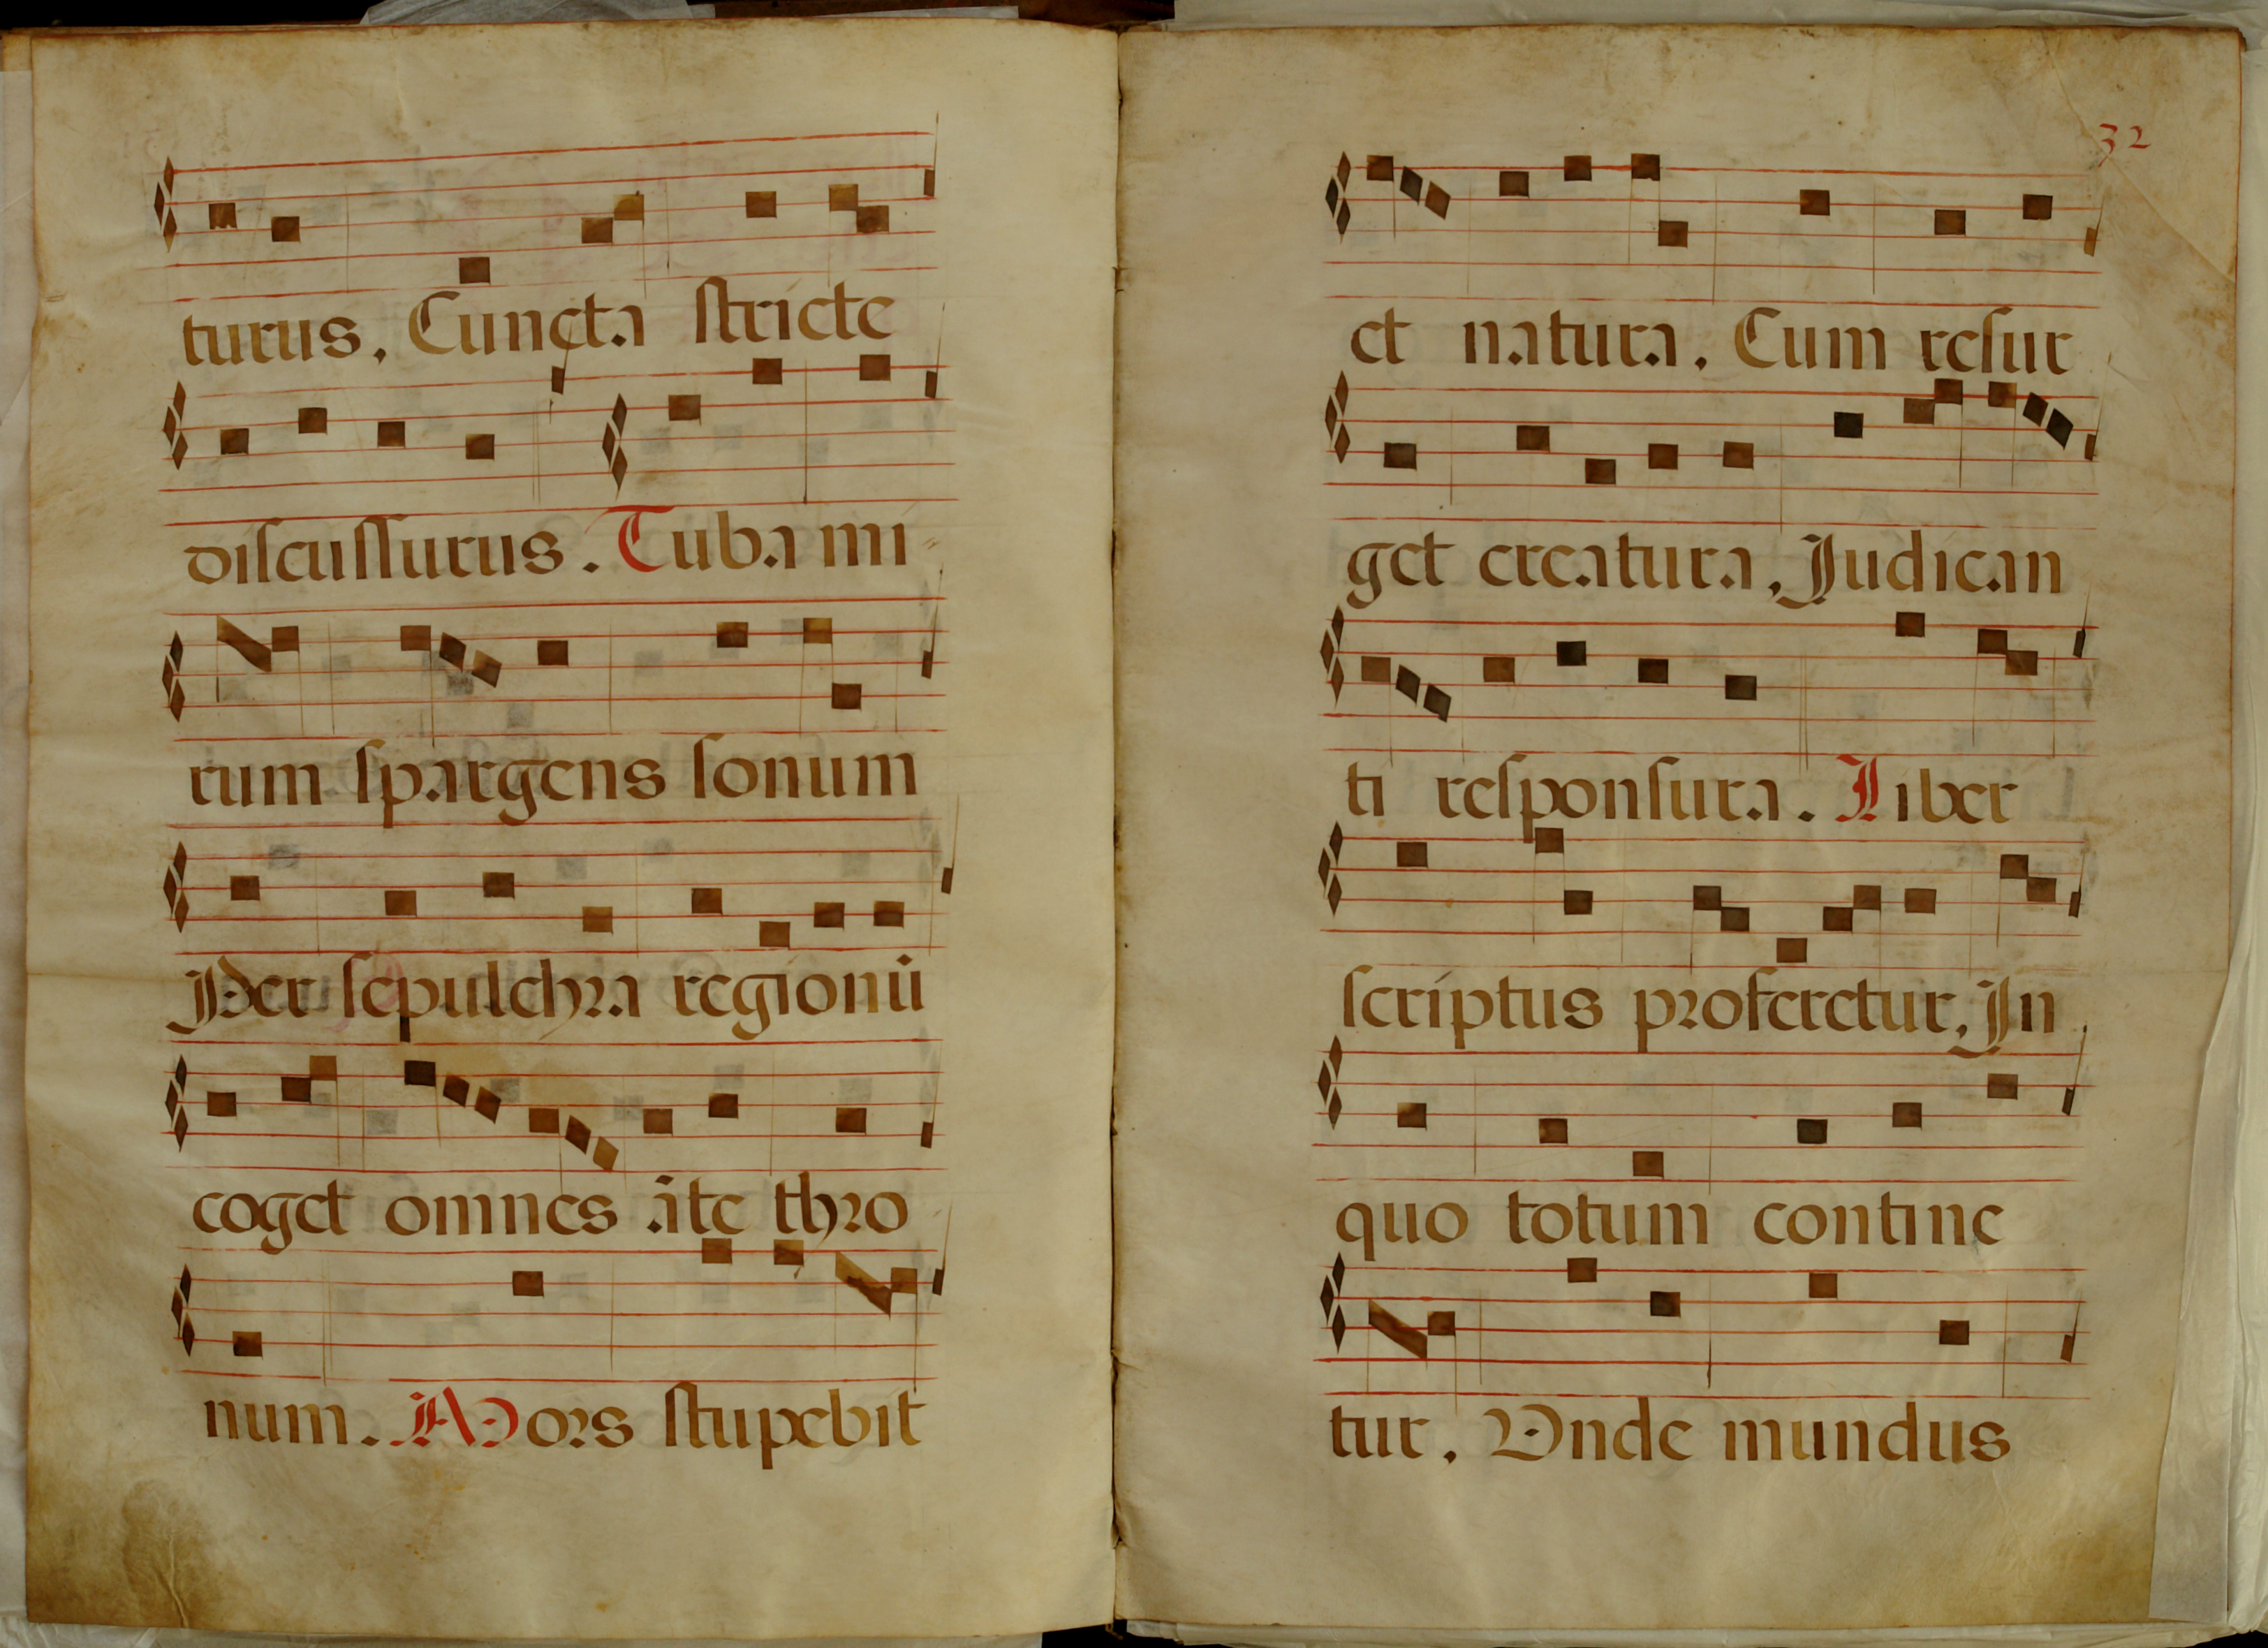 turus. Cuncta stricte
discussurus. Tuba mi-
rum spargens sonum
Per sepulchra regionū
coget omnes āte thro
num. Mors stupebit
32
et natura. Cum resur
get creatura, Judican
ti responsura. Liber
scriptus proferetur, In
quo totum contine
tur. Vnde mundus